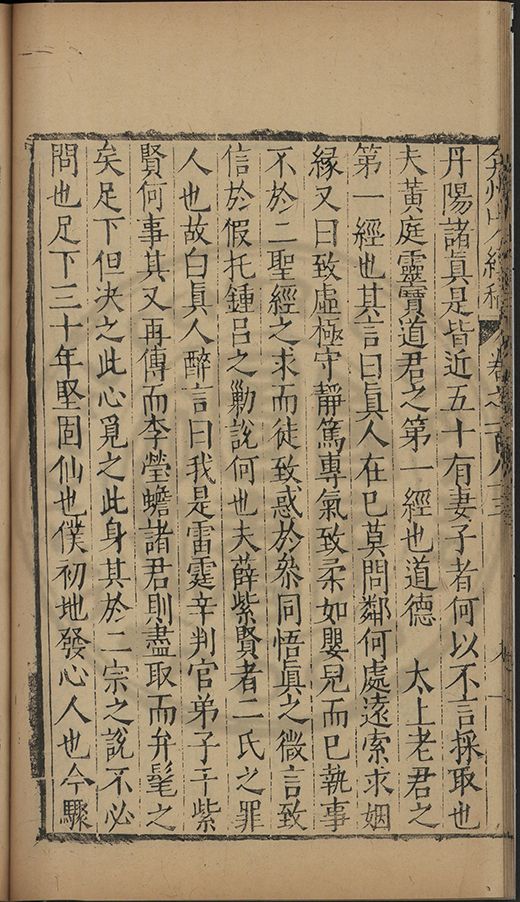 弇州山人續稿 卷之一百八十三
丹陽諸眞是皆近五十有妻子者何以不言採取也
夫黃庭靈寶道君之第一經也道德 太上老君之
第一經也其言曰眞人在巳莫問鄰何處遠索求姻
緣又曰致虛極守靜篤專氣致柔如嬰兒而巳執事
不於二聖經之求而徒致惑於叅同悟眞之微言致
信於假托鍾呂之勦說何也夫薛紫賢者二氏之罪
人也故白眞人醉言曰我是雷霆辛判官弟子干紫
賢何事其又再傳而李瑩蟾諸君則盡取而弁髦之
矣足下但決之此心覓之此身其於二宗之說不必
問也足下三十年堅固仙也僕初地發心人也今驟